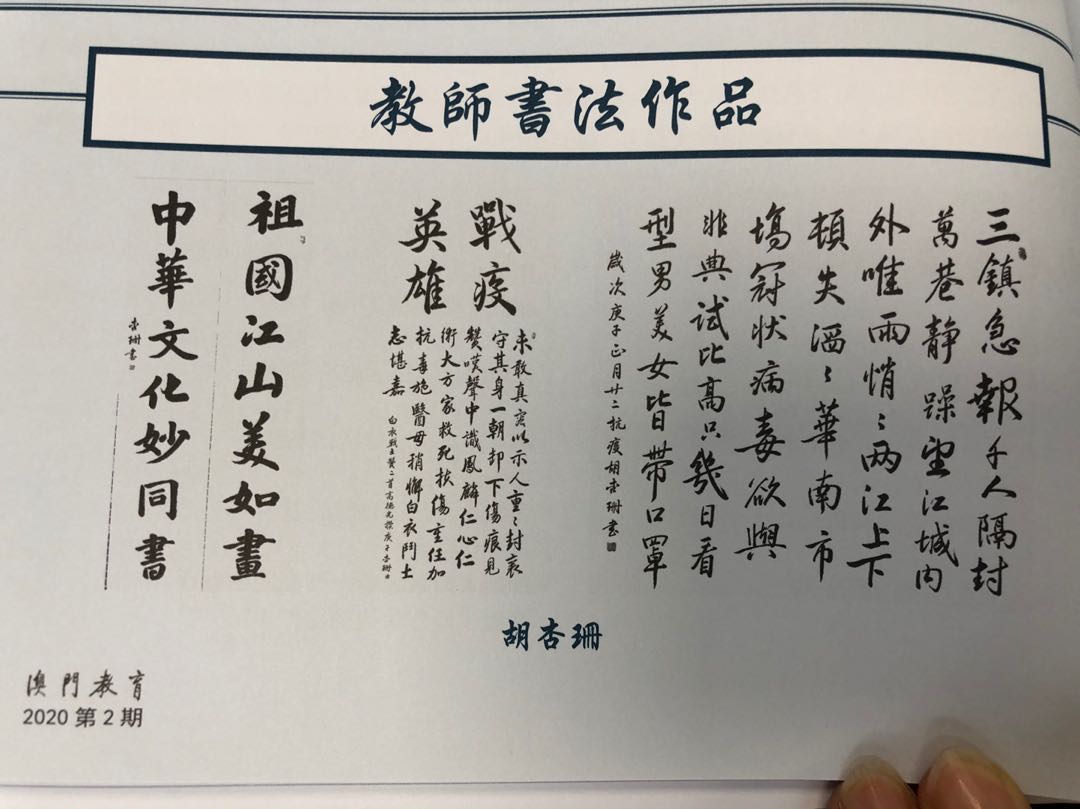 教師書法作品
三鎮急報千人隔封
萬巷靜躁望江城内
外唯雨悄〻两江上下
頓失滔〻華南市
場冠狀病毒欲與
非典試比高只幾日看
型男美女皆帶口罩
歲次庚子正月廿二抗疫胡杏珊書
戰疫
英雄
未敢真容以示人重〻封裹
守其身一朝卸下傷痕見
贊嘆聲中識鳳麟仁心仁
術大方家救死扶傷重任加
抗毒施醫毋稍懈白衣鬥士
志堪嘉
白衣戰士贊二首高德光撰庚子杏珊
祖國江山美如畫
中華文化妙同書
杏珊書
胡杏珊
澳門教育
2020 第 2 期